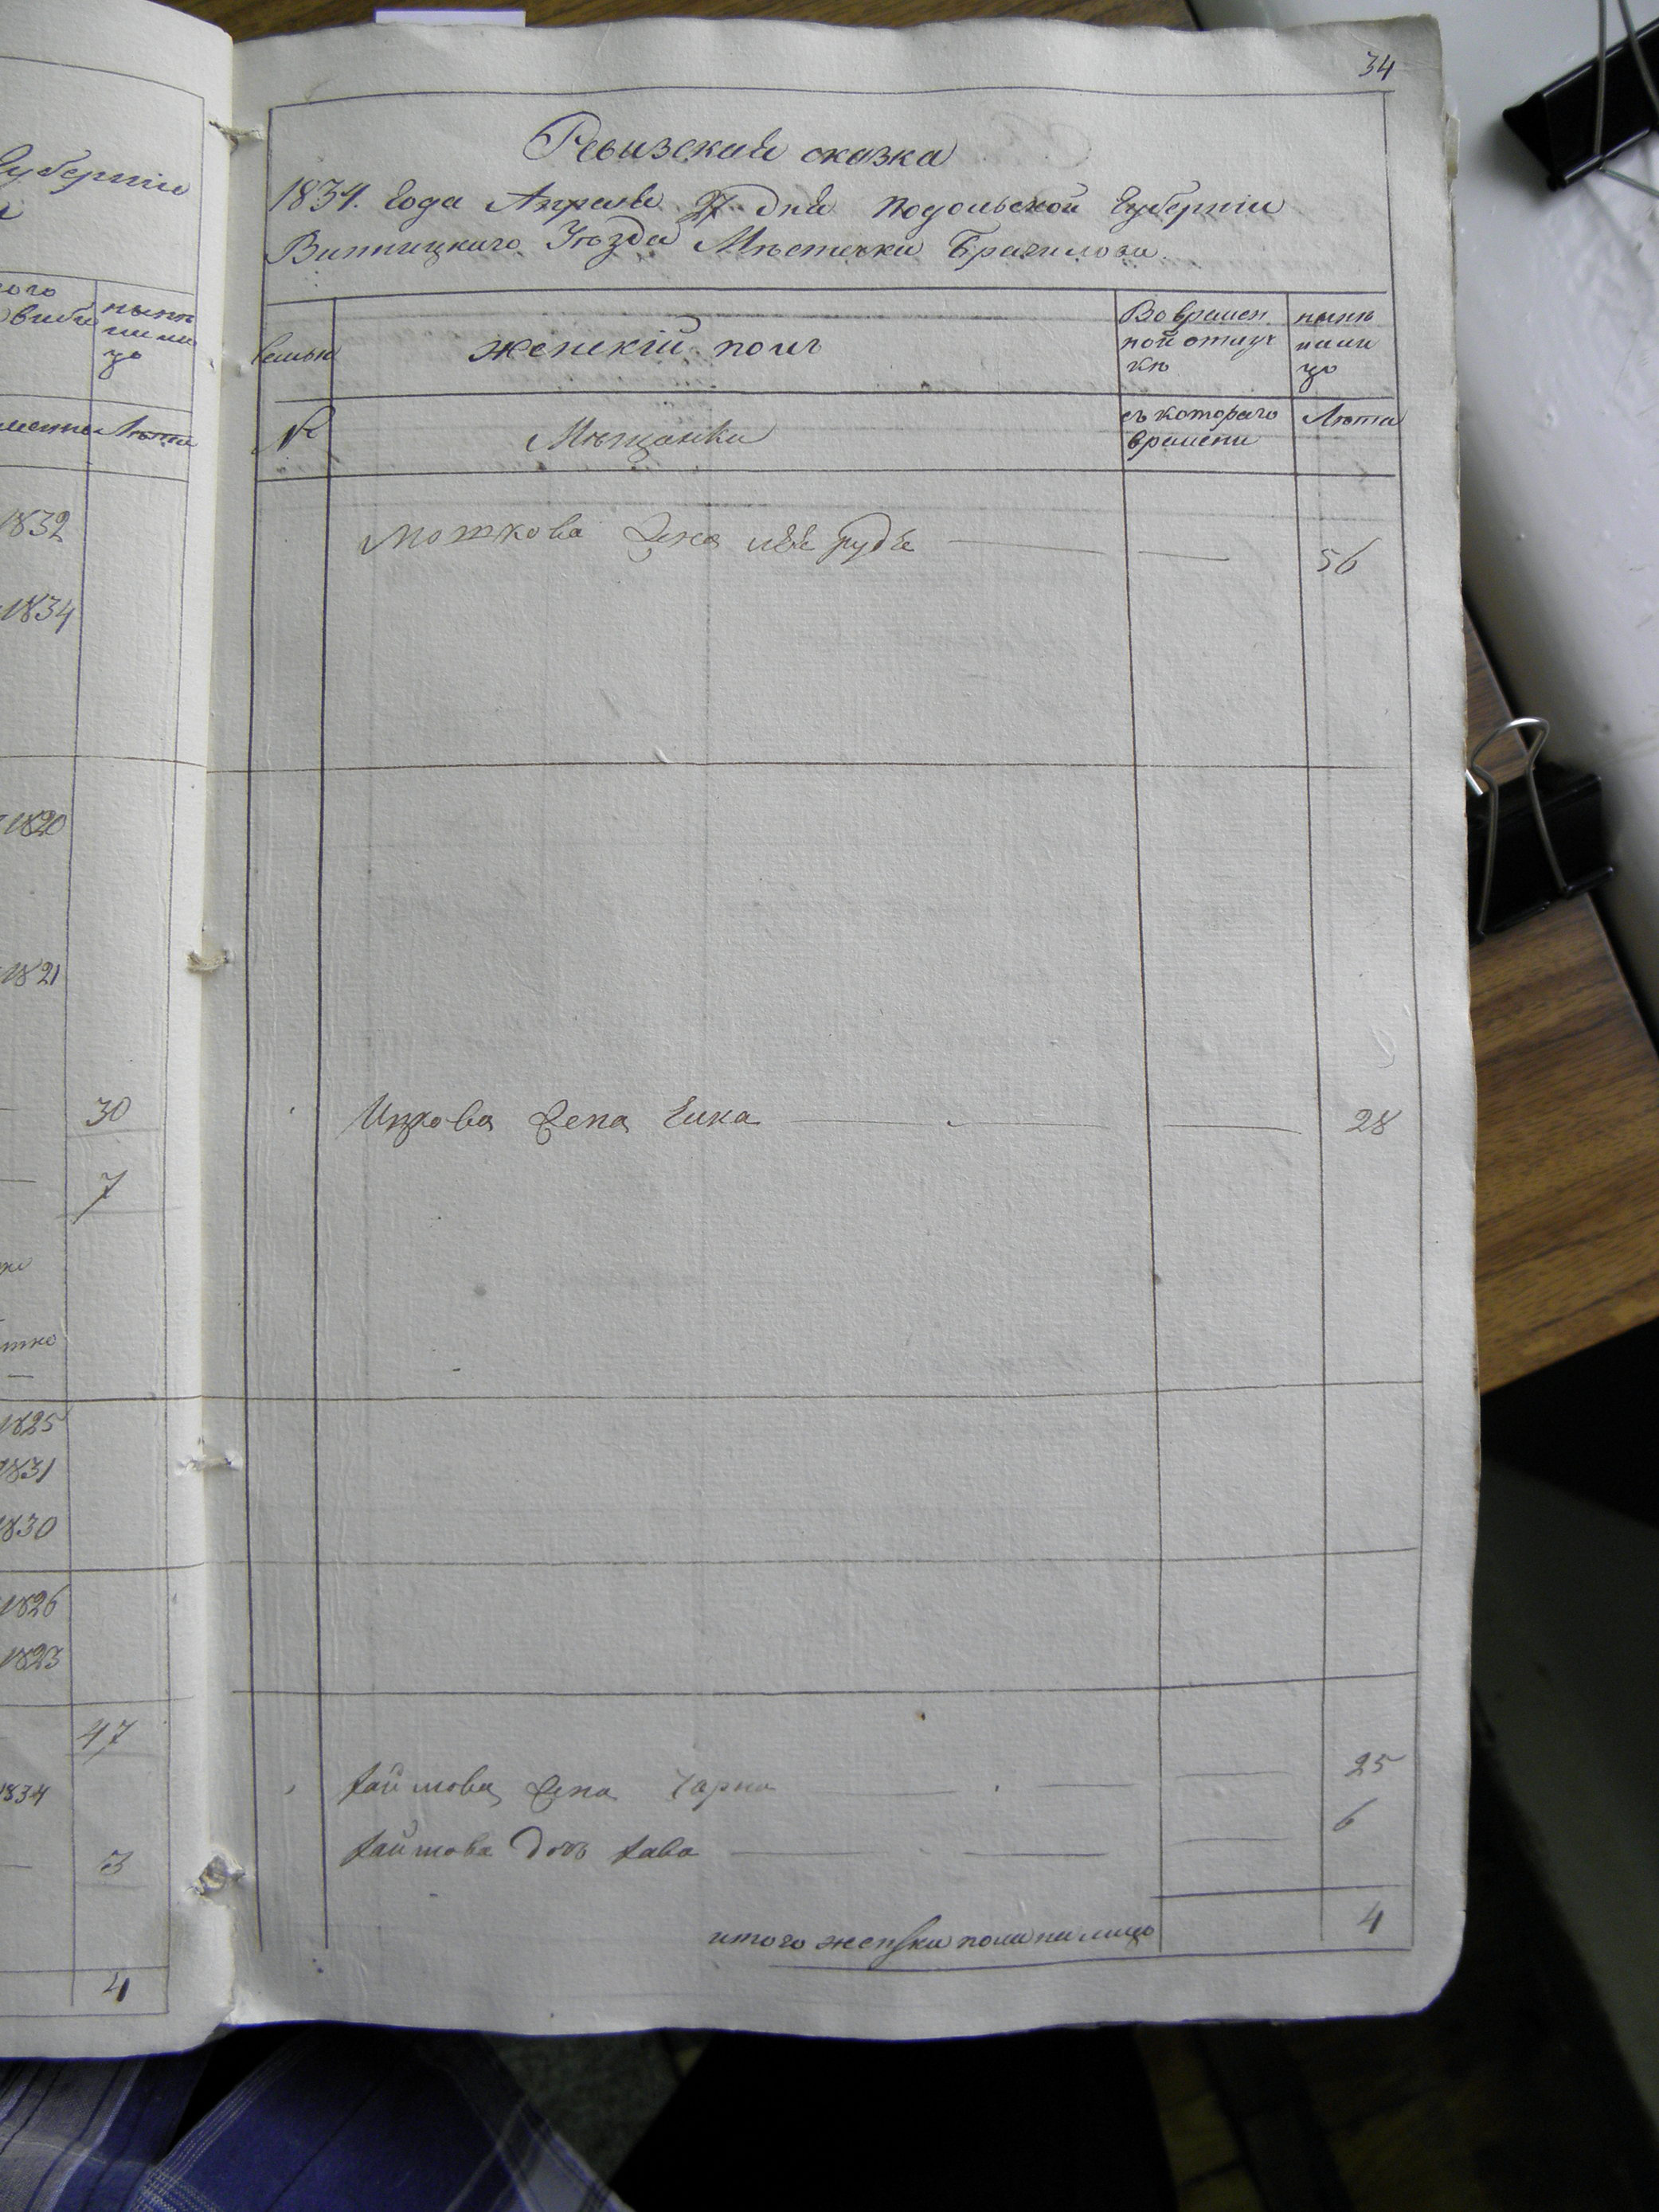 Губерніи
ого
нынѣ
ши ли
цо
Лѣта
1832
1834
1820
1821
30
7
1825
1831
1830
1826
1823
47
1834
3
4
34
Ревизская сказка
1834. Года Апреля 27 дня Подольской Губерніи
Винницкаго Уѣзда Мѣстечка Браилова
Семьи
женскій полъ
Во времен
ной отлуч
кѣ
нынѣ
нали
цо
№
Мѣщанки
съ котораго
времени
Лѣта
Мошкова Жена 56
Ицкова Жена 28
Хаимова Жена Чарна 25
Хаимова дочь Хава 6
итого женска пола на лицо 4